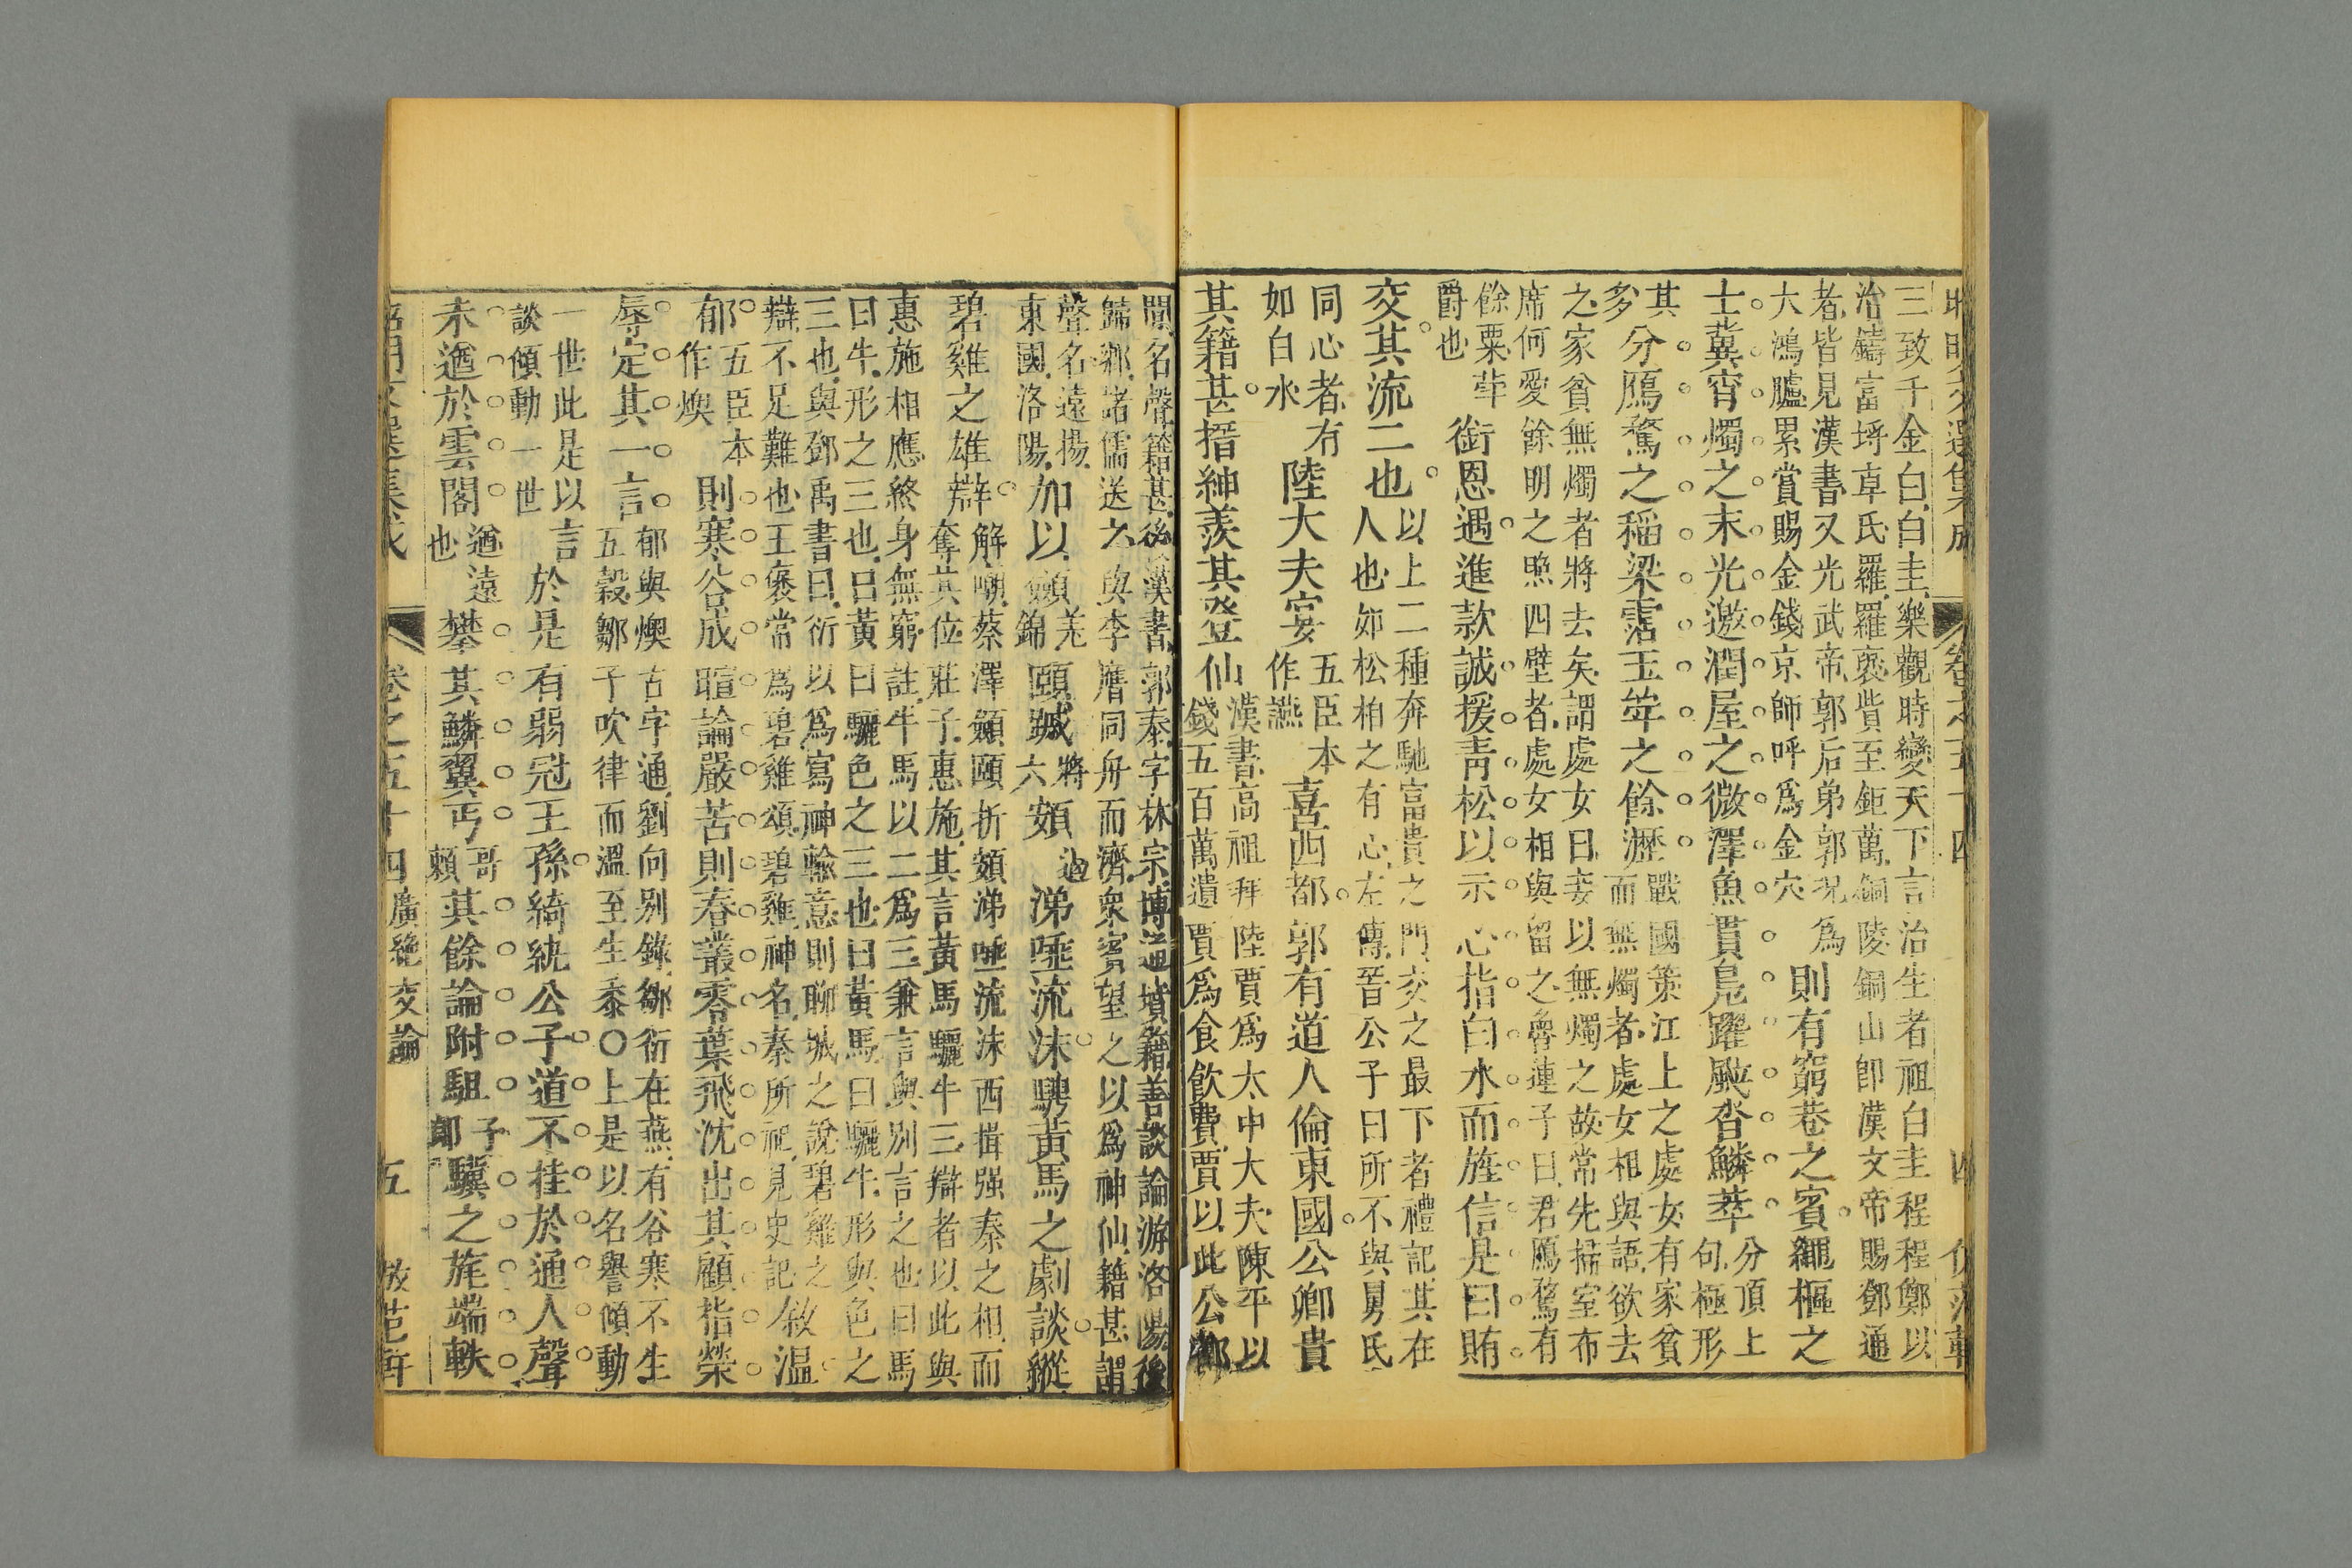 昭明文選集成 卷之五十四 四
三致千金白白圭樂觀時變天下言治生者祖白圭程程鄭以
冶鑄富埒卓氏羅羅褒貲至鉅萬銅陵銅山卽漢文帝賜鄧通
者皆見漢書又光武帝郭后弟郭況為
大鴻臚累賞賜金錢京師呼為金穴
則有窮巷之賓繩樞之
士冀宵燭之末光邀潤屋之微澤魚貫鳧躍颯沓鱗萃
分頂上
句極形
其
多
分鴈鶩之稻粱霑玉斝之餘瀝
戰國策江上之處女有家貧
而無燭者處女相與語欲去
之家貧無燭者將去矣謂處女曰妾以無燭之故常先掃室布
席何愛餘明之照四壁者處女相與留之魯連子曰君鴈鶩有
餘粟斝
爵也
銜恩遇進款誠援青松以示心指白水而旌信是曰賄
交其流二也
以上二種奔馳富貴之門交之最下者禮記其在
人也如松柏之有心左傳晉公子曰所不與舅氏
同心者有
如白水
陸大夫宴
五臣本
作讌
喜西都郭有道人倫東國公卿貴
其籍甚搢紳羨其登仙
漢書高祖拜陸賈為太中大夫陳平以
錢五百萬遺賈為食飲費賈以此公卿
間名聲籍甚後漢書郭泰字林宗博通墳籍善談論游洛陽後
歸鄉諸儒送之與李膺同舟而濟衆賓望之以為神仙籍甚謂
聲名遠揚
東國洛陽
加以顩
羌
錦
頤蹙
將
六
頞
遏
涕唾流沫騁黃馬之劇談縱
碧雞之雄辯
解嘲蔡澤顩頤折頞涕唾流沫西揖强秦之相而
奪其位莊子惠施其言黃馬驪牛三辯者以此與
惠施相應終身無窮註牛馬以二為三兼言與別言之也曰馬
曰牛形之三也曰黃曰驪色之三也曰黃馬曰驪牛形與色之
三也與鄧禹書曰衍以為寫神輸意則聊城之說碧雞之
辯不足難也王褒常為碧雞頌碧雞神名秦所祀見史記
敘溫
郁
五臣本
作燠
則寒谷成暄論嚴苦則春叢零葉飛沈出其顧指榮
辱定其一言
郁與燠古字通劉向別錄鄒衍在燕有谷寒不生
五穀鄒子吹律而溫至生黍○上是以名譽傾動
一世此是以言
談傾動一世
於是有弱冠王孫綺紈公子道不挂於通人聲
未遒於雲閣
遒遠
也
攀其鱗翼丐
哥
賴
其餘論附駔
子
郎
驥之旄端軼
昭明文選集成 卷之五十四 廣絕交論 五 倣范軒